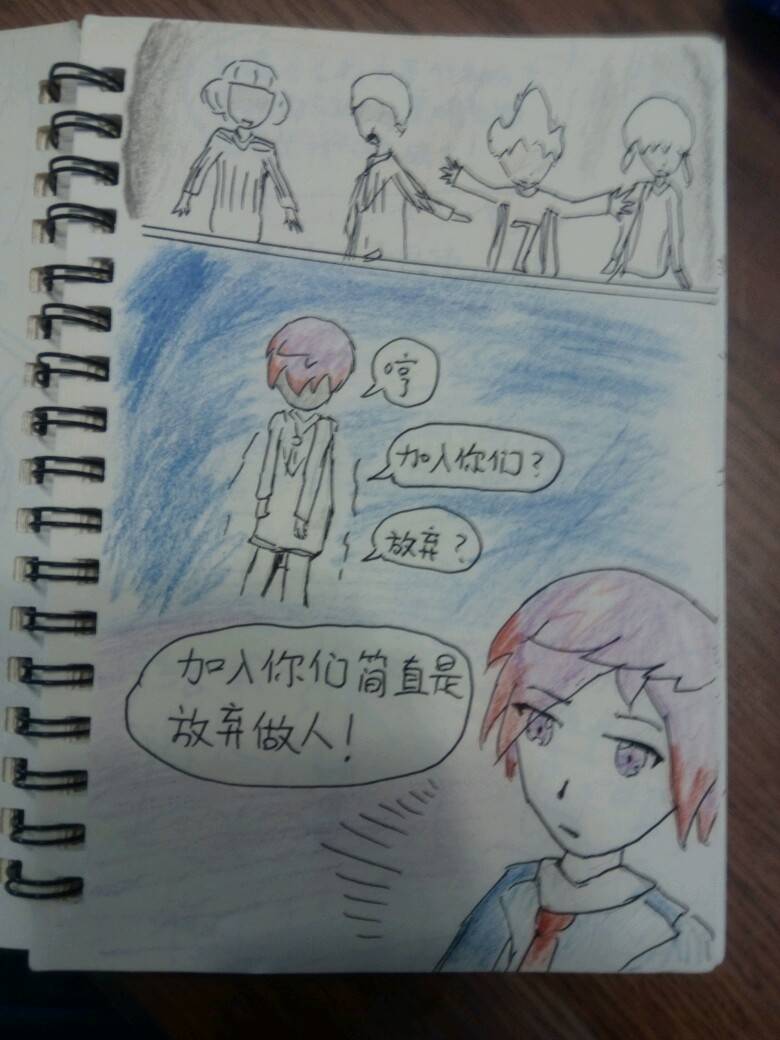 哼
加入你们？
放弃？
加入你们简直是
放弃做人！